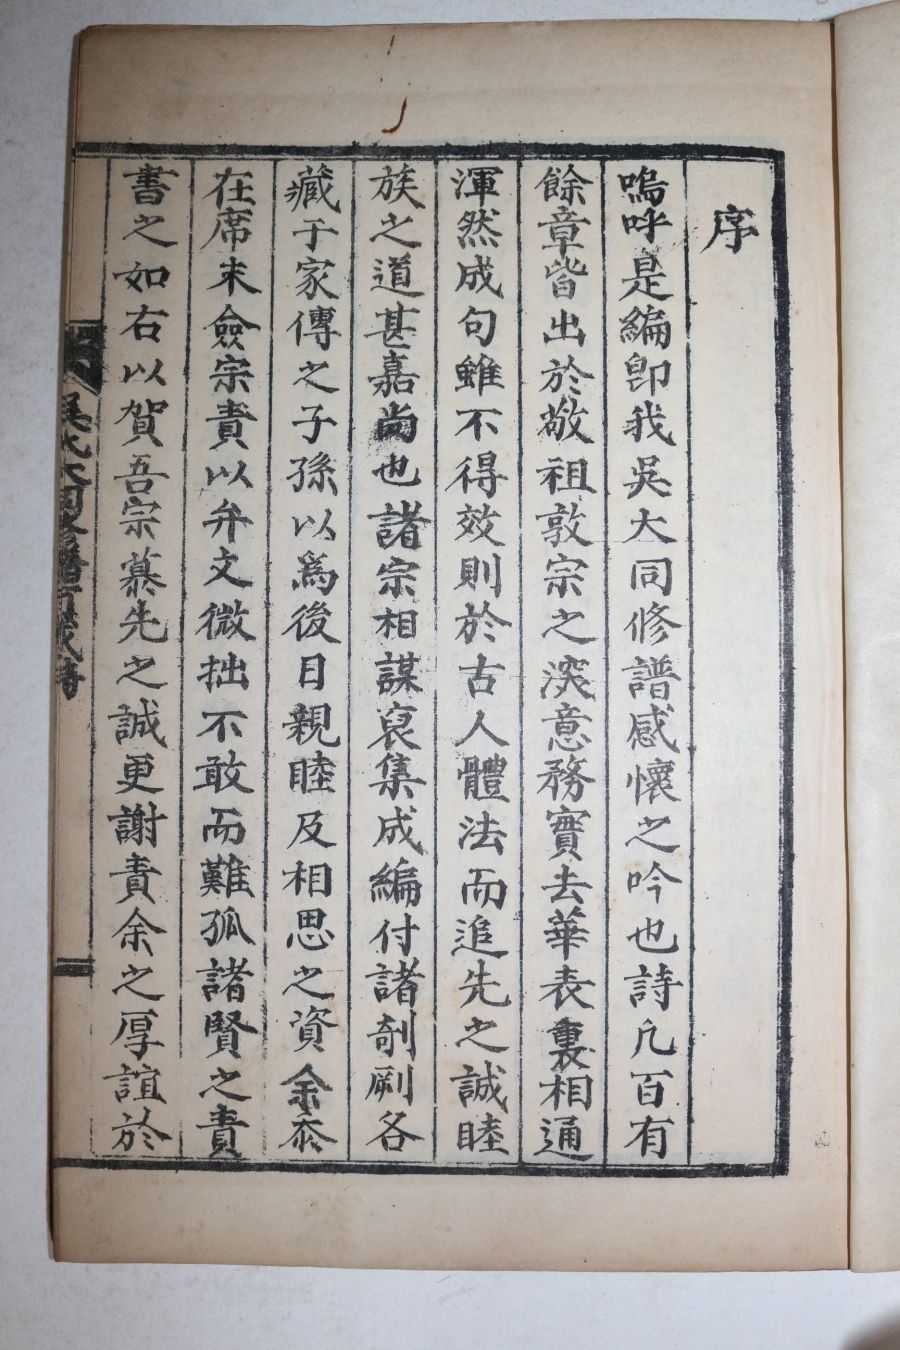 序
嗚呼是編卽我吳大同修譜感懷之吟也詩凡百有
餘章皆出於敬祖敦宗之深意務實去華表裏相通
渾然成句雖不得效則於古人體法而追先之誠睦
族之道甚嘉尙也諸宗相謀裒集成編付諸剞劂各
藏于家傳之子孫以爲後日親睦及相思之資余忝
在席末僉宗責以弁文微拙不敢而難孤諸賢之責
書之如右以賀吾宗慕先之誠更謝責余之厚誼於
吳氏大同修譜